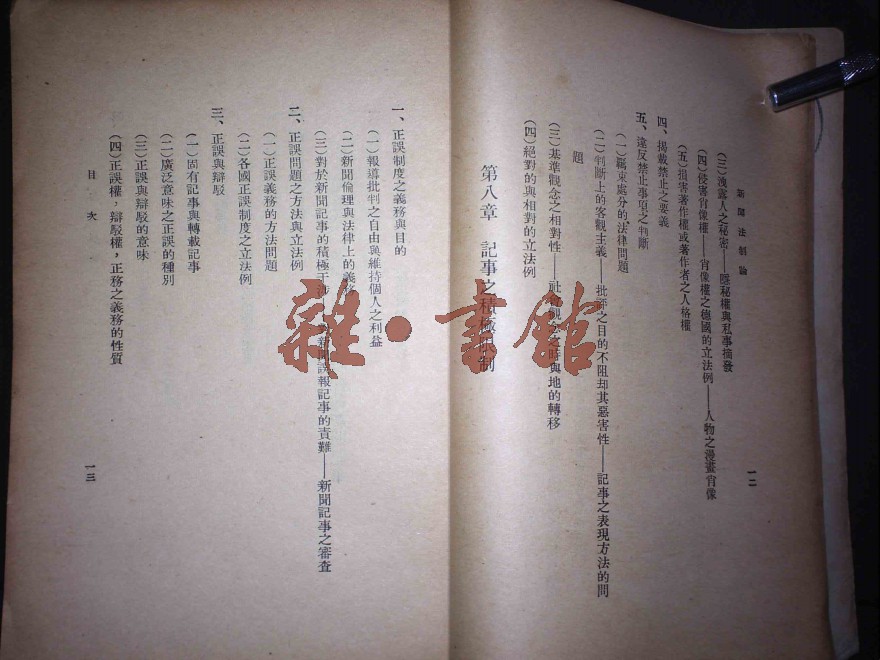 新聞法制論
一二
（三）洩露人之秘密——隱秘權與私事摘發
（四）侵害肖像權——肖像權之德國的立法例——人物之漫畫肖像
（五）損害著作權或著作者之人格權
四、揭載禁止之要義
五、違反禁止事項之判斷
（一）羈束處分的法律問題
（二）判斷上的客觀主義——批評之目的不阻却其惡害性——記事之表現方法的問
題
（三）基準觀念之相對性——社會觀念之時與地的轉移
（四）絕對的與相對的立法例
第八章　記事之積極限制
一、正誤制度之義務與目的
（一）報導批判之自由與維持個人之利益
（二）新聞倫理與法律上的義務
（三）對於新聞記事的積極干涉
新聞誤報記事的責難——新聞記事之審查
二、正誤問題之方法與立法例
（一）正誤義務的方法問題
（二）各國正誤制度之立法例
三、正誤與辯駁
（一）固有記事與轉載記事
（二）廣泛意味之正誤的種別
（三）正誤與辯駁的意味
（四）正誤權，辯駁權，正務之義務的性質
目次
一三
雜·書館